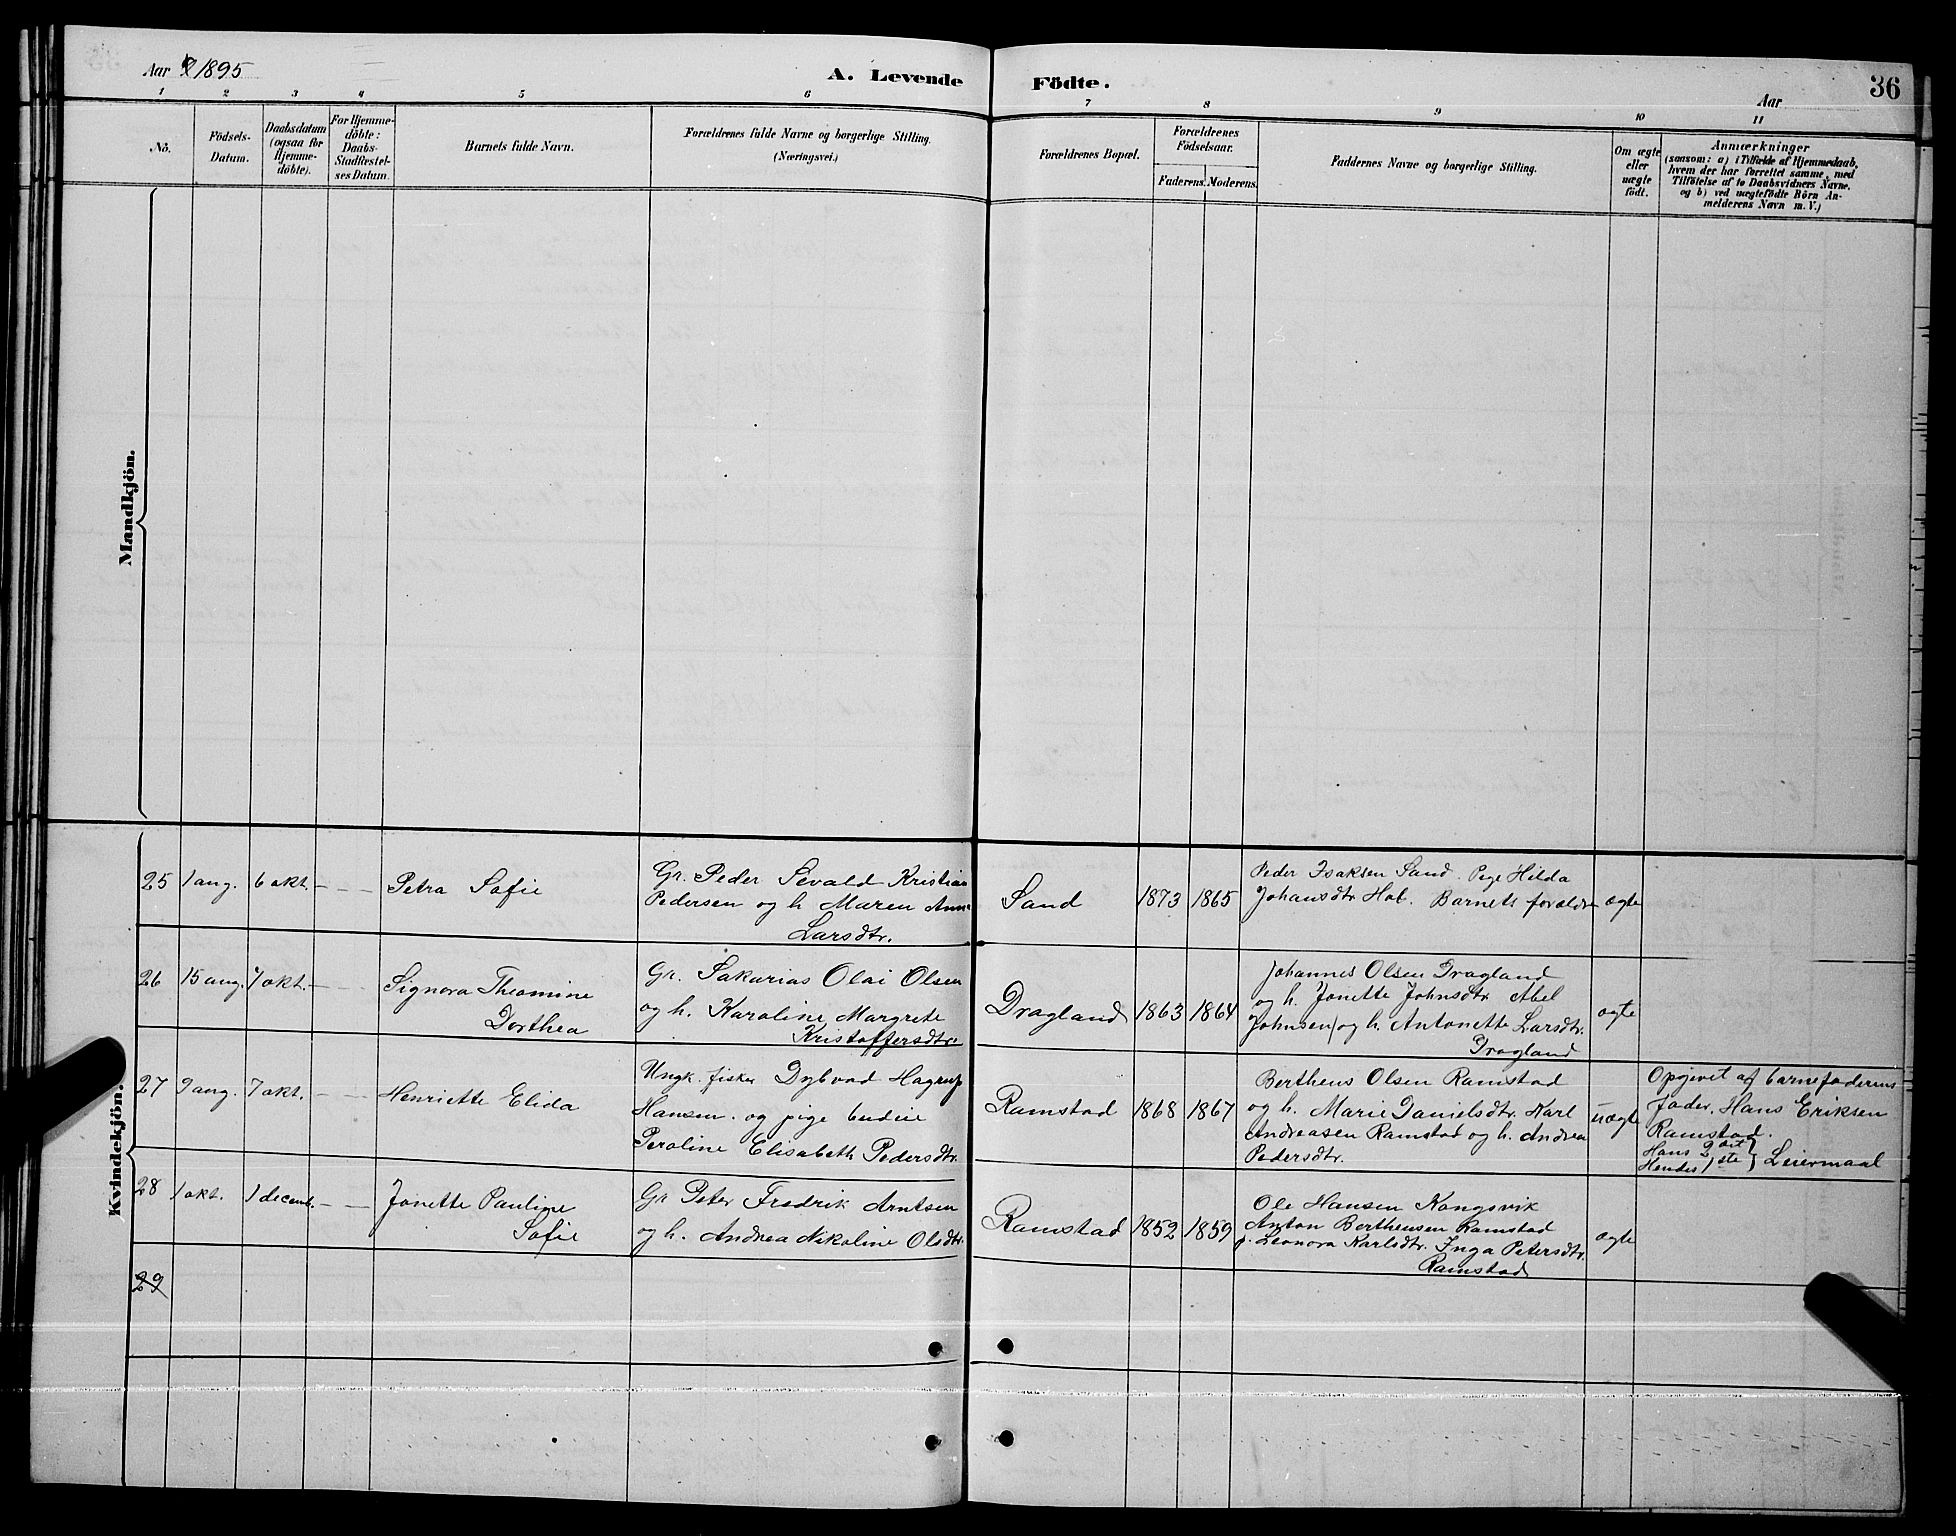 Aar 1895
A. Levende Födte.
36
Aar
1 2 3 4 5 6 7 8 9 10 11
No.
Födsels-
Datum.
Daabsdatum
(ogsaa for
Hjemme-
döbte).
For Hjemme-
döbte:
Daabs-
Stadfestel-
ses Datum.
Barnets fulde Navn.
Forældrenes fulde Navne og borgerlige Stilling.
(Næringsvei.)
Forældrenes Bopæl.
Forældrenes
Födselsaar.
Faderens. Moderens.
Faddernes Navne og borgerlige Stilling.
Om ægte
eller
uægte
födt.
Anmærkninger
(saasom: a) i Tilfælde af Hjemmedaab,
hvem der har forrettet samme, med
Tilföielse af to Daabsvidners Navne,
og b) ved uægtefödte Börn An-
melderens Navn m. V.)
Mandkjön.
Kvindekjön.
25 1 aug. 6 okt. - - -
Petra Sofie
Gr. Peder Sevald Kristian
Pedersen og h. Maren Anna
Larsdtr.
Sand 1873 1865
Peder Isaksen Sand. Pige Hilda
Johansdtr Hol. Barnets forældre
ægte
26 15 aug. 7 okt. - - -
Signora Theomine
Dorthea
Gr. Sakarias Olai Olsen
og h. Karoline Margrete
Kristoffersdtr.
Dragland 1863 1864
Johannes Olsen Dragland
og h. Jonette Johnsdtr Abel
Johnsen og h. Antonette Larsdtr.
Dragland
ægte
27 9 aug. 7 okt. - - -
Henriette Elida
Ungk. fisker Dybvad Hagrup
Hansen. og pige budeie
Peroline Elisabeth Pedersdtr.
Ramstad 1868 1867
Bertheus Olsen Ramstad
og h. Marie Danielsdtr. Karl
Andreasen Ramstad og h. Andrea
Pedersdtr.
uægte
Opgivet af barnefaderens
fader, Hans Eriksen
Ramstad.
Hans 2det
Hendes 1ste } Leiermaal
28 1 okt. 1 decemb. - - -
Jonette Pauline
Sofie
Gr. Peter Fredrik Arntsen
og h. Andrea Nikoline Olsdtr.
Ramstad 1852 1859
Ole Hansen Kongsvik
Anton Bertheusen Ramstad
p. Leonora Karlsdtr. Inga Petersdtr.
Ramstad
ægte
29